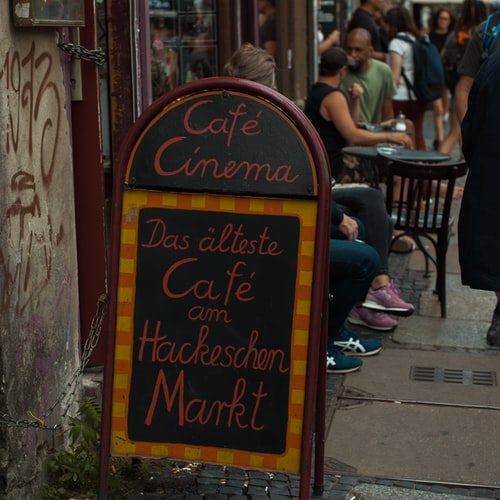 Café
Cinema
Das älteste
Café
am
Hackeschen
Markt